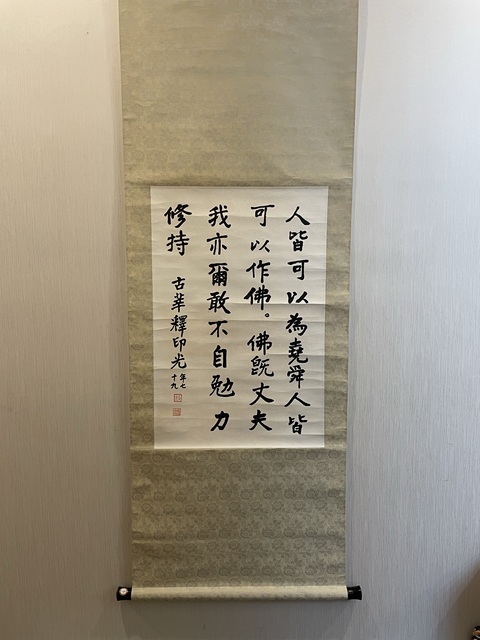 人皆可以為堯舜人皆
可以作佛。佛既丈夫
我亦爾敢不自勉力
修持
古莘釋印光
年七
十九